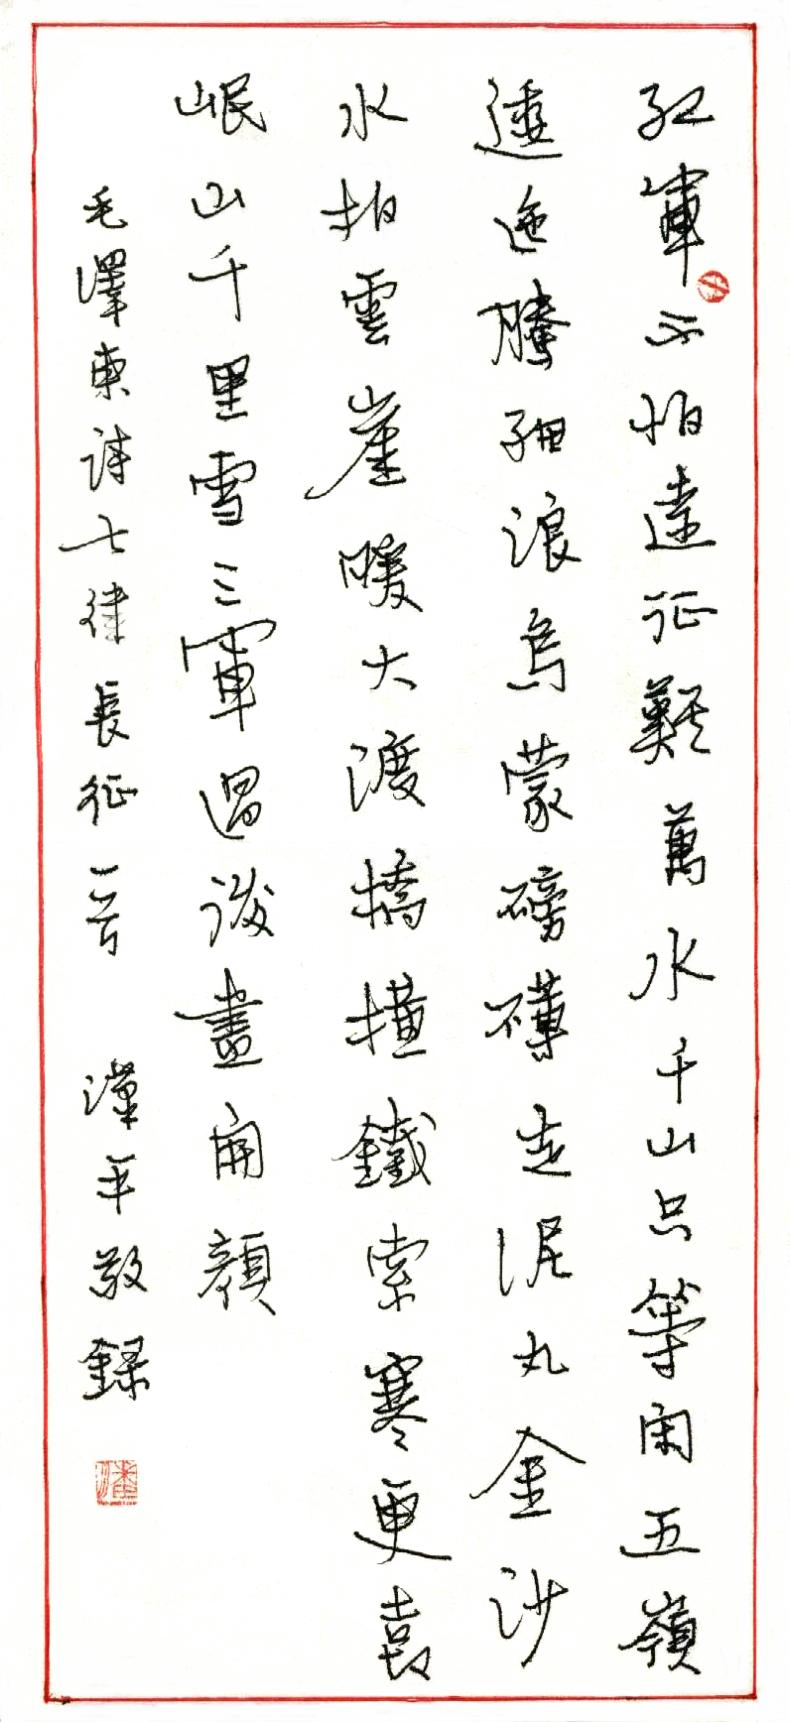 紅軍不怕遠征難萬水千山只等閑五嶺
逶迤騰細浪烏蒙磅礴走泥丸金沙
水拍雲崖暖大渡橋橫鐵索寒更喜
岷山千里雪三軍過後盡開顏
毛澤東詩七律長征一首 漢平敬錄
潘